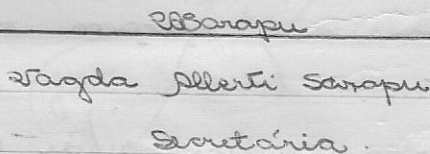 VASarapu
Vagda Alberti Sarapu
Secretária.